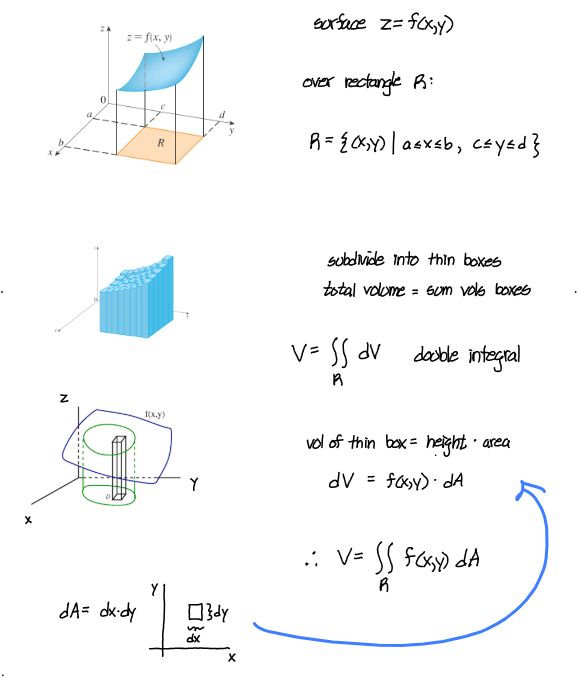 surface z = f(x,y)
z = f(x, y)
z
0
a
b
c
d
x
y
R
over rectangle R:
R = {(x,y) | a≤x≤b, c≤y≤d}
subdivide into thin boxes
total volume = sum vols boxes
V = ∬ dV double integral
R
z
0
x
y
Z
f(x,y)
D
Y
X
vol of thin box = height · area
dV = f(x,y) · dA
∴ V = ∬ f(x,y) dA
R
dA = dx·dy
Y
}dy
dx
X